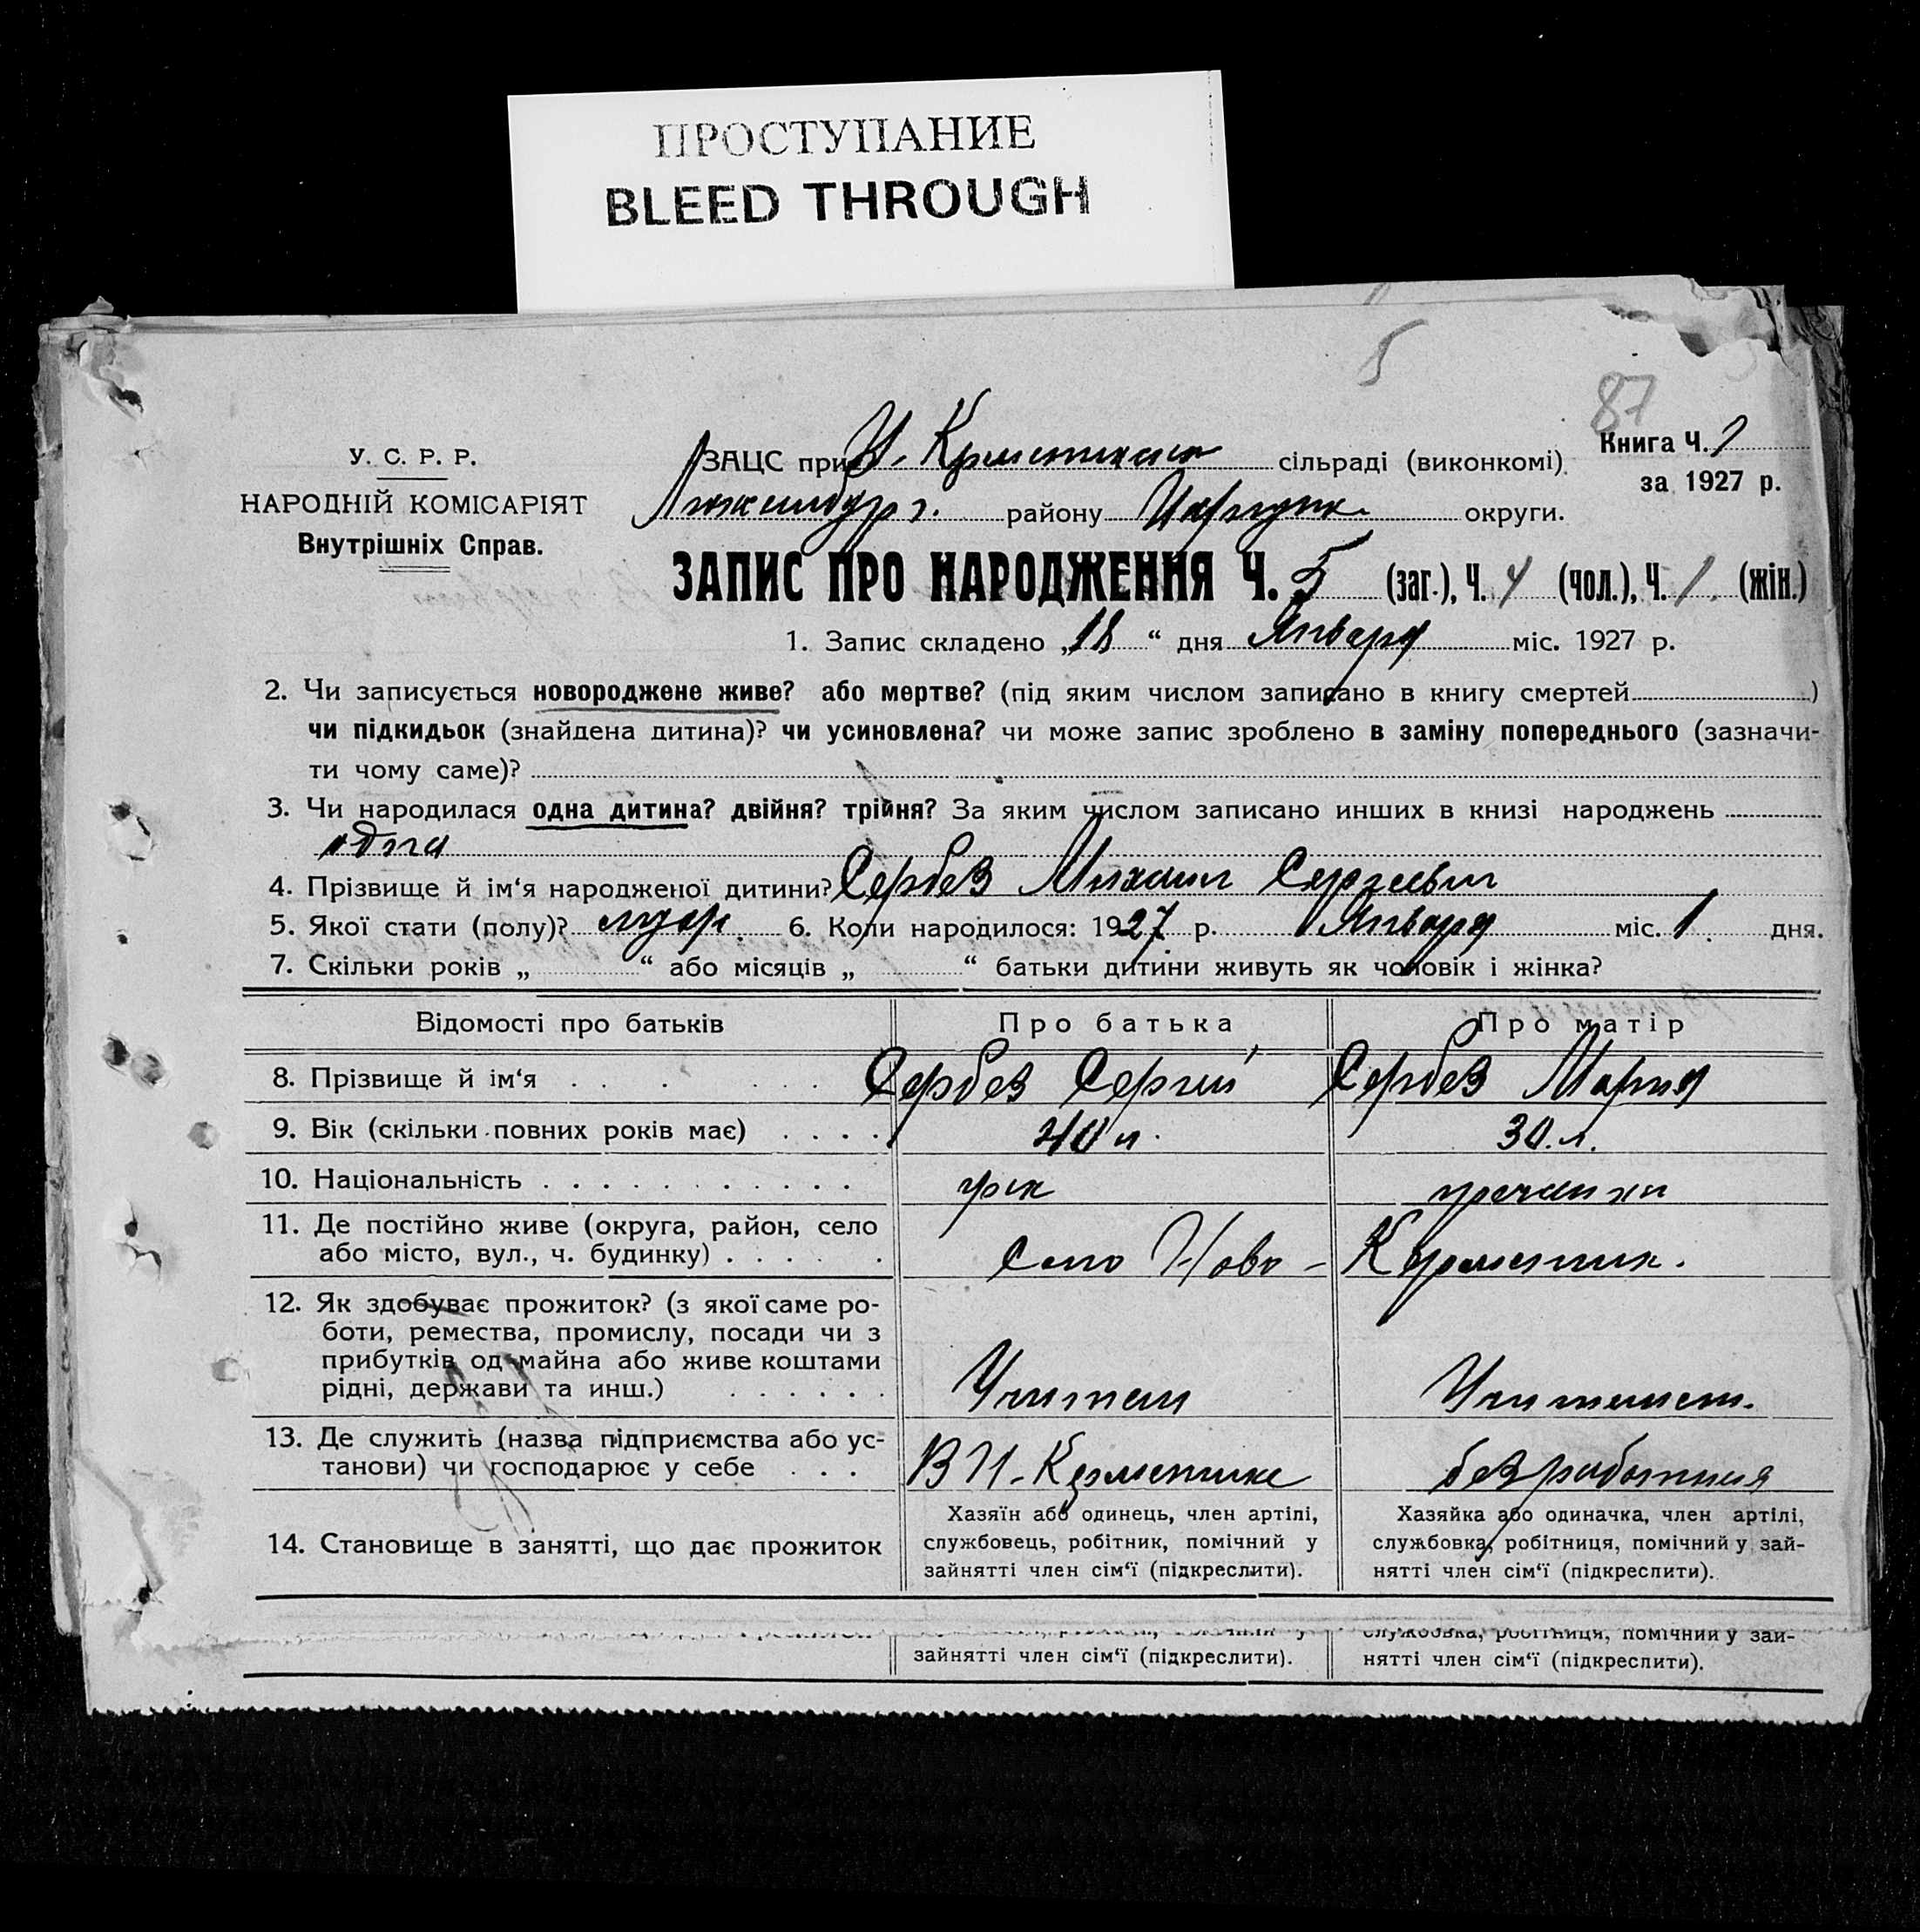 ПРОСТУПАНИЕ
BLEED THROUGH
5
87
У. С. Р. Р.
НАРОДНІЙ КОМІСАРІЯТ
Внутрішніх Справ.
ЗАЦС при сільраді (виконкомі).
Книга Ч. 1
за 1927 р.
району округи.
ЗАПИС ПРО НАРОДЖЕННЯ Ч. 5 (заг.), Ч. 4 (чол.), Ч. 1 (жін.)
1. Запис складено „18“ дня Января міс. 1927 р.
2. Чи записується новороджене живе? або мертве? (під яким числом записано в книгу смертей )
чи підкидьок (знайдена дитина)? чи усиновлена? чи може запис зроблено в заміну попереднього (зазначи-
ти чому саме)?
3. Чи народилася одна дитина? двійня? трійня? За яким числом записано инших в книзі народжень
одна
4. Прізвище й ім‘я народженої дитини? Сербев Михаил Сергеевич
5. Якої стати (полу)? муж. 6. Коли народилося: 1927 р. Января міс. 1 дня.
7. Скільки років „ “ або місяців „ “ батьки дитини живуть як чоловік і жінка?
Відомості про батьків Про батька Про матір
8. Прізвище й ім‘я . . . . . . Сербев Сергий Сербев Мария
9. Вік (скільки повних років має) . . . . 40 л. 30 л.
10. Національність . . . . . . . . . . . грек гречанка
11. Де постійно живе (округа, район, село
або місто, вул., ч. будинку) . . . . . . Село Ново - Керменчик.
12. Як здобуває прожиток? (з якої саме ро-
боти, ремества, промислу, посади чи з
прибутків од майна або живе коштами
рідні, держави та инш.) . . . . . . Учитель Учительст.
13. Де служить (назва підприємства або ус-
танови) чи господарює у себе . . . В Н-Керменчике безработная
14. Становище в занятті, що дає прожиток
Хазяїн або одинець, член артілі,
службовець, робітник, помічний у
зайнятті член сім‘ї (підкреслити).
Хазяйка або одиначка, член артілі,
службовка, робітниця, помічний у зай-
нятті член сім‘ї (підкреслити).
зайнятті член сім‘ї (підкреслити).
службовка, робітниця, помічний у зай-
нятті член сім‘ї (підкреслити).